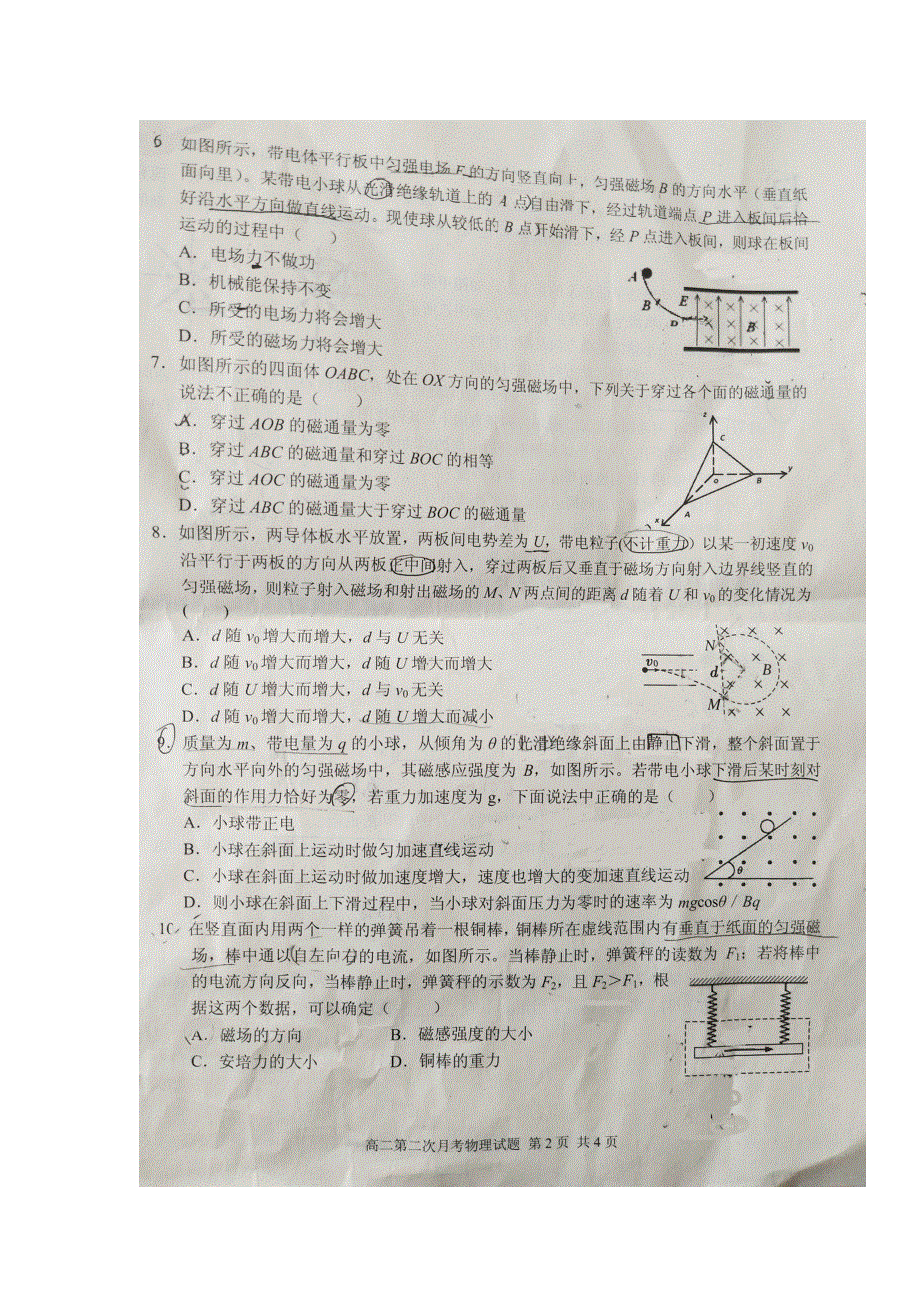 6 如图所示，带电体平行板中匀强电场 E 的方向竖直向上，匀强磁场 B 的方向水平（垂直纸
面向里）。某带电小球从光滑绝缘轨道上的 A 点自由滑下，经过轨道端点 P 进入板间后恰
好沿水平方向做直线运动。现使球从较低的 B 点开始滑下，经 P 点进入板间，则球在板间
运动的过程中（ ）
A．电场力不做功
B．机械能保持不变
C．所受的电场力将会增大
D．所受的磁场力将会增大
A
B
P
E
B
7．如图所示的四面体 OABC，处在 OX 方向的匀强磁场中，下列关于穿过各个面的磁通量的
说法不正确的是（ ）
A．穿过 AOB 的磁通量为零
B．穿过 ABC 的磁通量和穿过 BOC 的相等
C．穿过 AOC 的磁通量为零
D．穿过 ABC 的磁通量大于穿过 BOC 的磁通量
z
C
O
B
y
A
x
8．如图所示，两导体板水平放置，两板间电势差为 U，带电粒子(不计重力）以某一初速度 v0
沿平行于两板的方向从两板正中间射入，穿过两板后又垂直于磁场方向射入边界线竖直的
匀强磁场，则粒子射入磁场和射出磁场的 M、N 两点间的距离 d 随着 U 和 v0 的变化情况为
( )
A．d 随 v0 增大而增大，d 与 U 无关
B．d 随 v0 增大而增大，d 随 U 增大而增大
C．d 随 U 增大而增大，d 与 v0 无关
D．d 随 v0 增大而增大，d 随 U 增大而减小
v0
N
d
B
M
9．质量为 m、带电量为 q 的小球，从倾角为 θ 的光滑绝缘斜面上由静止下滑，整个斜面置于
方向水平向外的匀强磁场中，其磁感应强度为 B，如图所示。若带电小球下滑后某时刻对
斜面的作用力恰好为零，若重力加速度为 g，下面说法中正确的是（ ）
A．小球带正电
B．小球在斜面上运动时做匀加速直线运动
C．小球在斜面上运动时做加速度增大，速度也增大的变加速直线运动
D．则小球在斜面上下滑过程中，当小球对斜面压力为零时的速率为 mgcosθ／Bq
θ
10 在竖直面内用两个一样的弹簧吊着一根铜棒，铜棒所在虚线范围内有垂直于纸面的匀强磁
场，棒中通以自左向右的电流，如图所示。当棒静止时，弹簧秤的读数为 F1；若将棒中
的电流方向反向，当棒静止时，弹簧秤的示数为 F2，且 F2＞F1，根
据这两个数据，可以确定（ ）
A．磁场的方向 B．磁感强度的大小
C．安培力的大小 D．铜棒的重力
高二第二次月考物理试题 第 2 页 共 4 页